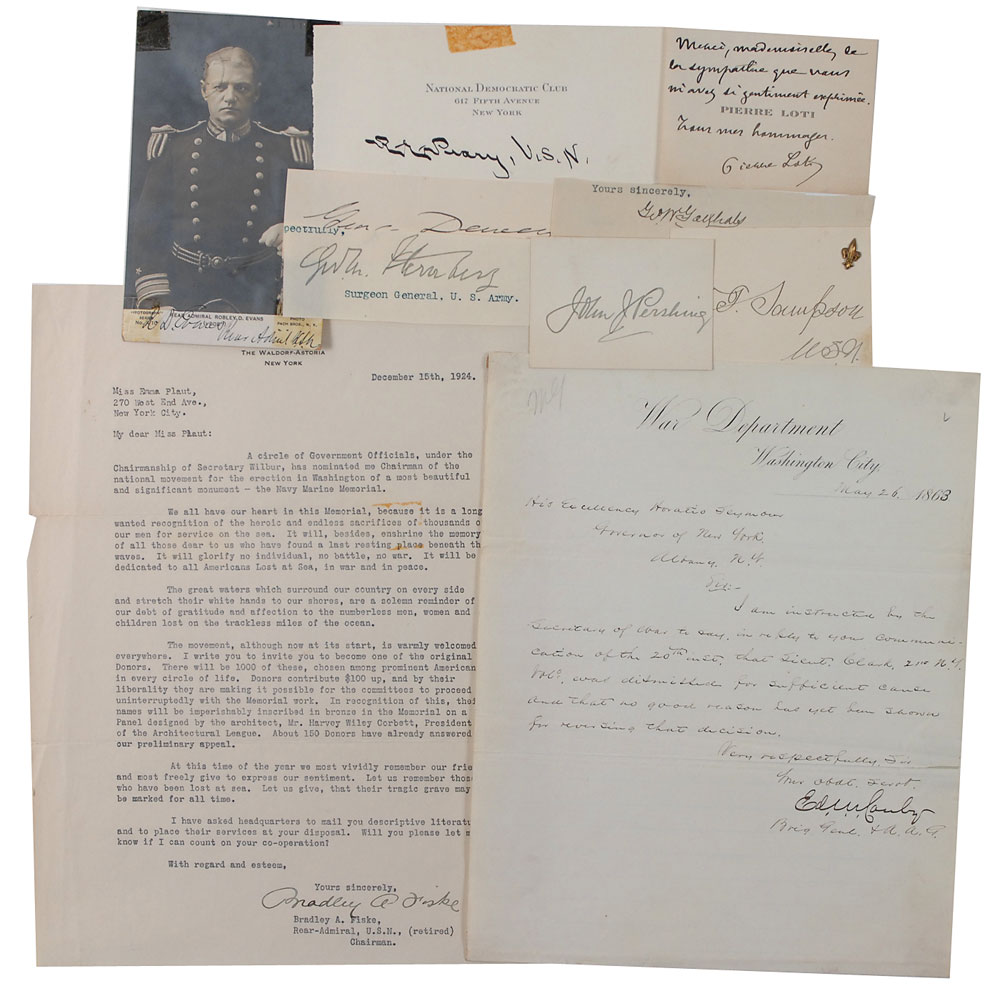 REAR ADMIRAL ROBLEY, D. EVANS
PHOTO
PACH BROS., N. Y.
Rear Admiral U.S.N.
NATIONAL DEMOCRATIC CLUB
617 FIFTH AVENUE
NEW YORK
R E Peary, U.S.N.
Merci, mademoiselle, de
la sympathie que vous
m'avez si gentiment exprimée.
PIERRE LOTI
Tous mes hommages.
Pierre Loti
Yours sincerely,
Geo W Goethals
pectfully,
George Dewey
Geo. M. Sternberg
Surgeon General, U. S. Army.
John J Pershing
T. Sampson
U.S.N.
THE WALDORF-ASTORIA
NEW YORK
December 15th, 1924.
Miss Emma Plaut,
270 West End Ave.,
New York City.
My dear Miss Plaut:
A circle of Government Officials, under the
Chairmanship of Secretary Wilbur, has nominated me Chairman of the
national movement for the erection in Washington of a most beautiful
and significant monument - the Navy Marine Memorial.
We all have our heart in this Memorial, because it is a long
wanted recognition of the heroic and endless sacrifices of thousands o
our men for service on the sea. It will, besides, enshrine the memory
of all those dear to us who have found a last resting place beneath th
waves. It will glorify no individual, no battle, no war. It will be
dedicated to all Americans Lost at Sea, in war and in peace.
The great waters which surround our country on every side
and stretch their white hands to our shores, are a solemn reminder of
our debt of gratitude and affection to the numberless men, women and
children lost on the trackless miles of the ocean.
The movement, although now at its start, is warmly welcomed
everywhere. I write you to invite you to become one of the original
Donors. There will be 1000 of these, chosen among prominent American
in every circle of life. Donors contribute $100 up, and by their
liberality they are making it possible for the committees to proceed
uninterruptedly with the Memorial work. In recognition of this, thei
names will be imperishably inscribed in bronze in the Memorial on a
Panel designed by the architect, Mr. Harvey Wiley Corbett, President
of the Architectural League. About 150 Donors have already answered
our preliminary appeal.
At this time of the year we most vividly remember our frie
and most freely give to express our sentiment. Let us remember thos
who have been lost at sea. Let us give, that their tragic grave may
be marked for all time.
I have asked headquarters to mail you descriptive literatu
and to place their services at your disposal. Will you please let m
know if I can count on your co-operation?
With regard and esteem,
Yours sincerely,
Bradley A Fiske
Bradley A. Fiske,
Rear-Admiral, U.S.N., (retired)
Chairman.
War Department
Washington City,
May 26, 1863
His Excellency Horatio Seymour
Governor of New York,
Albany N.Y.
Sir:-
I am instructed by the
Secretary of War to say, in reply to your communi-
cation of the 20th inst, that Lieut. Clark, 2nd N.Y.
Vols, was dismissed for sufficient cause
and that no good reason has yet been shown
for revising that decision.
Very respectfully Sir
Your obdt. servt.
Ed. R. S. Canby
Brig. Genl. & A. A. G.